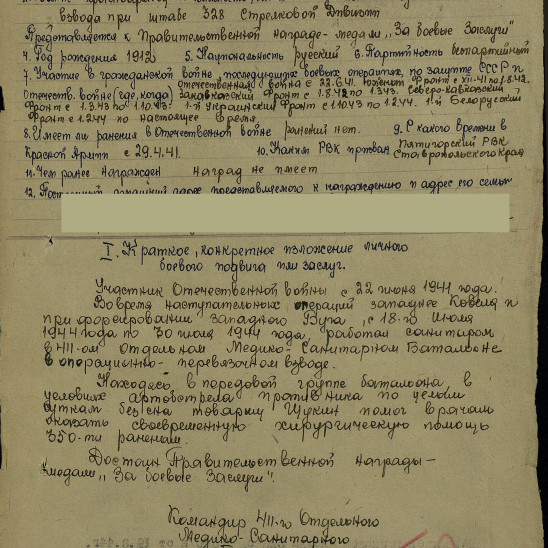 взвода при штабе 328 Стрелковой Дивизии
Представляется к Правительственной награде- медали „За боевые Заслуги"
4. Год рождения 1912 5. Национальность русский 6. Партийность беспартийный
7. Участие в гражданской войне, последующих боевых операциях по защите СССР и
Отечеств. войне (где, когда) Отечественной война с 22.6.41. Южный Фронт с XII-41 по 1.8.42.
Закавказский Фронт с 1.8.42 по 1.3.43. Северо-Кавказский
Фронт с 1.3.43 по 1.10.43. 1-й Украинский Фронт с 1.10.43 по 1.2.44. 1-й Белорусский
Фронт с 1.2.44 по настоящее время.
8. Имеет ли ранения в Отечественной войне ранений нет. 9. С какого времени в
Красной Армии с 29.4.41. 10. Каким РВК призван Пятигорский РВК
Ставропольского края
11. Чем ранее награжден Наград не имеет
12. Постоянный домашний адрес представляемого к награждению и адрес его семьи
I. Краткое, конкретное изложение личного
боевого подвига или заслуг.
Участник Отечественной войны с 22 июня 1941 года.
Во время наступательных операций западнее Ковеля и
при форсировании западного Буга, с 18-го Июля
1944 года по 30 июля 1944 года, работал санитаром
в 411-ом Отдельном Медико-Санитарном Баталионе
в операционно-перевязочном взводе.
Находясь в передовой группе баталиона, в
условиях артобстрела противника по целым
суткам без сна товарищ Щукин помог врачам
оказать своевременную хирургическую помощь
350-ти раненым.
Достоин Правительственной награды-
медали „За боевые Заслуги".
Командир 411-го Отдельного
Медико-Санитарного